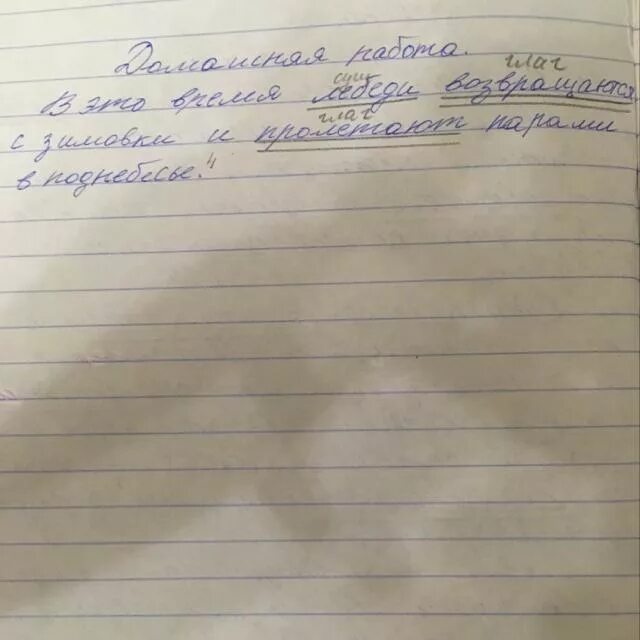 Домашняя работа.
сущ глаг
В это время лебеди возвращаются
глаг
с зимовки и пролетают парами
в поднебесье."